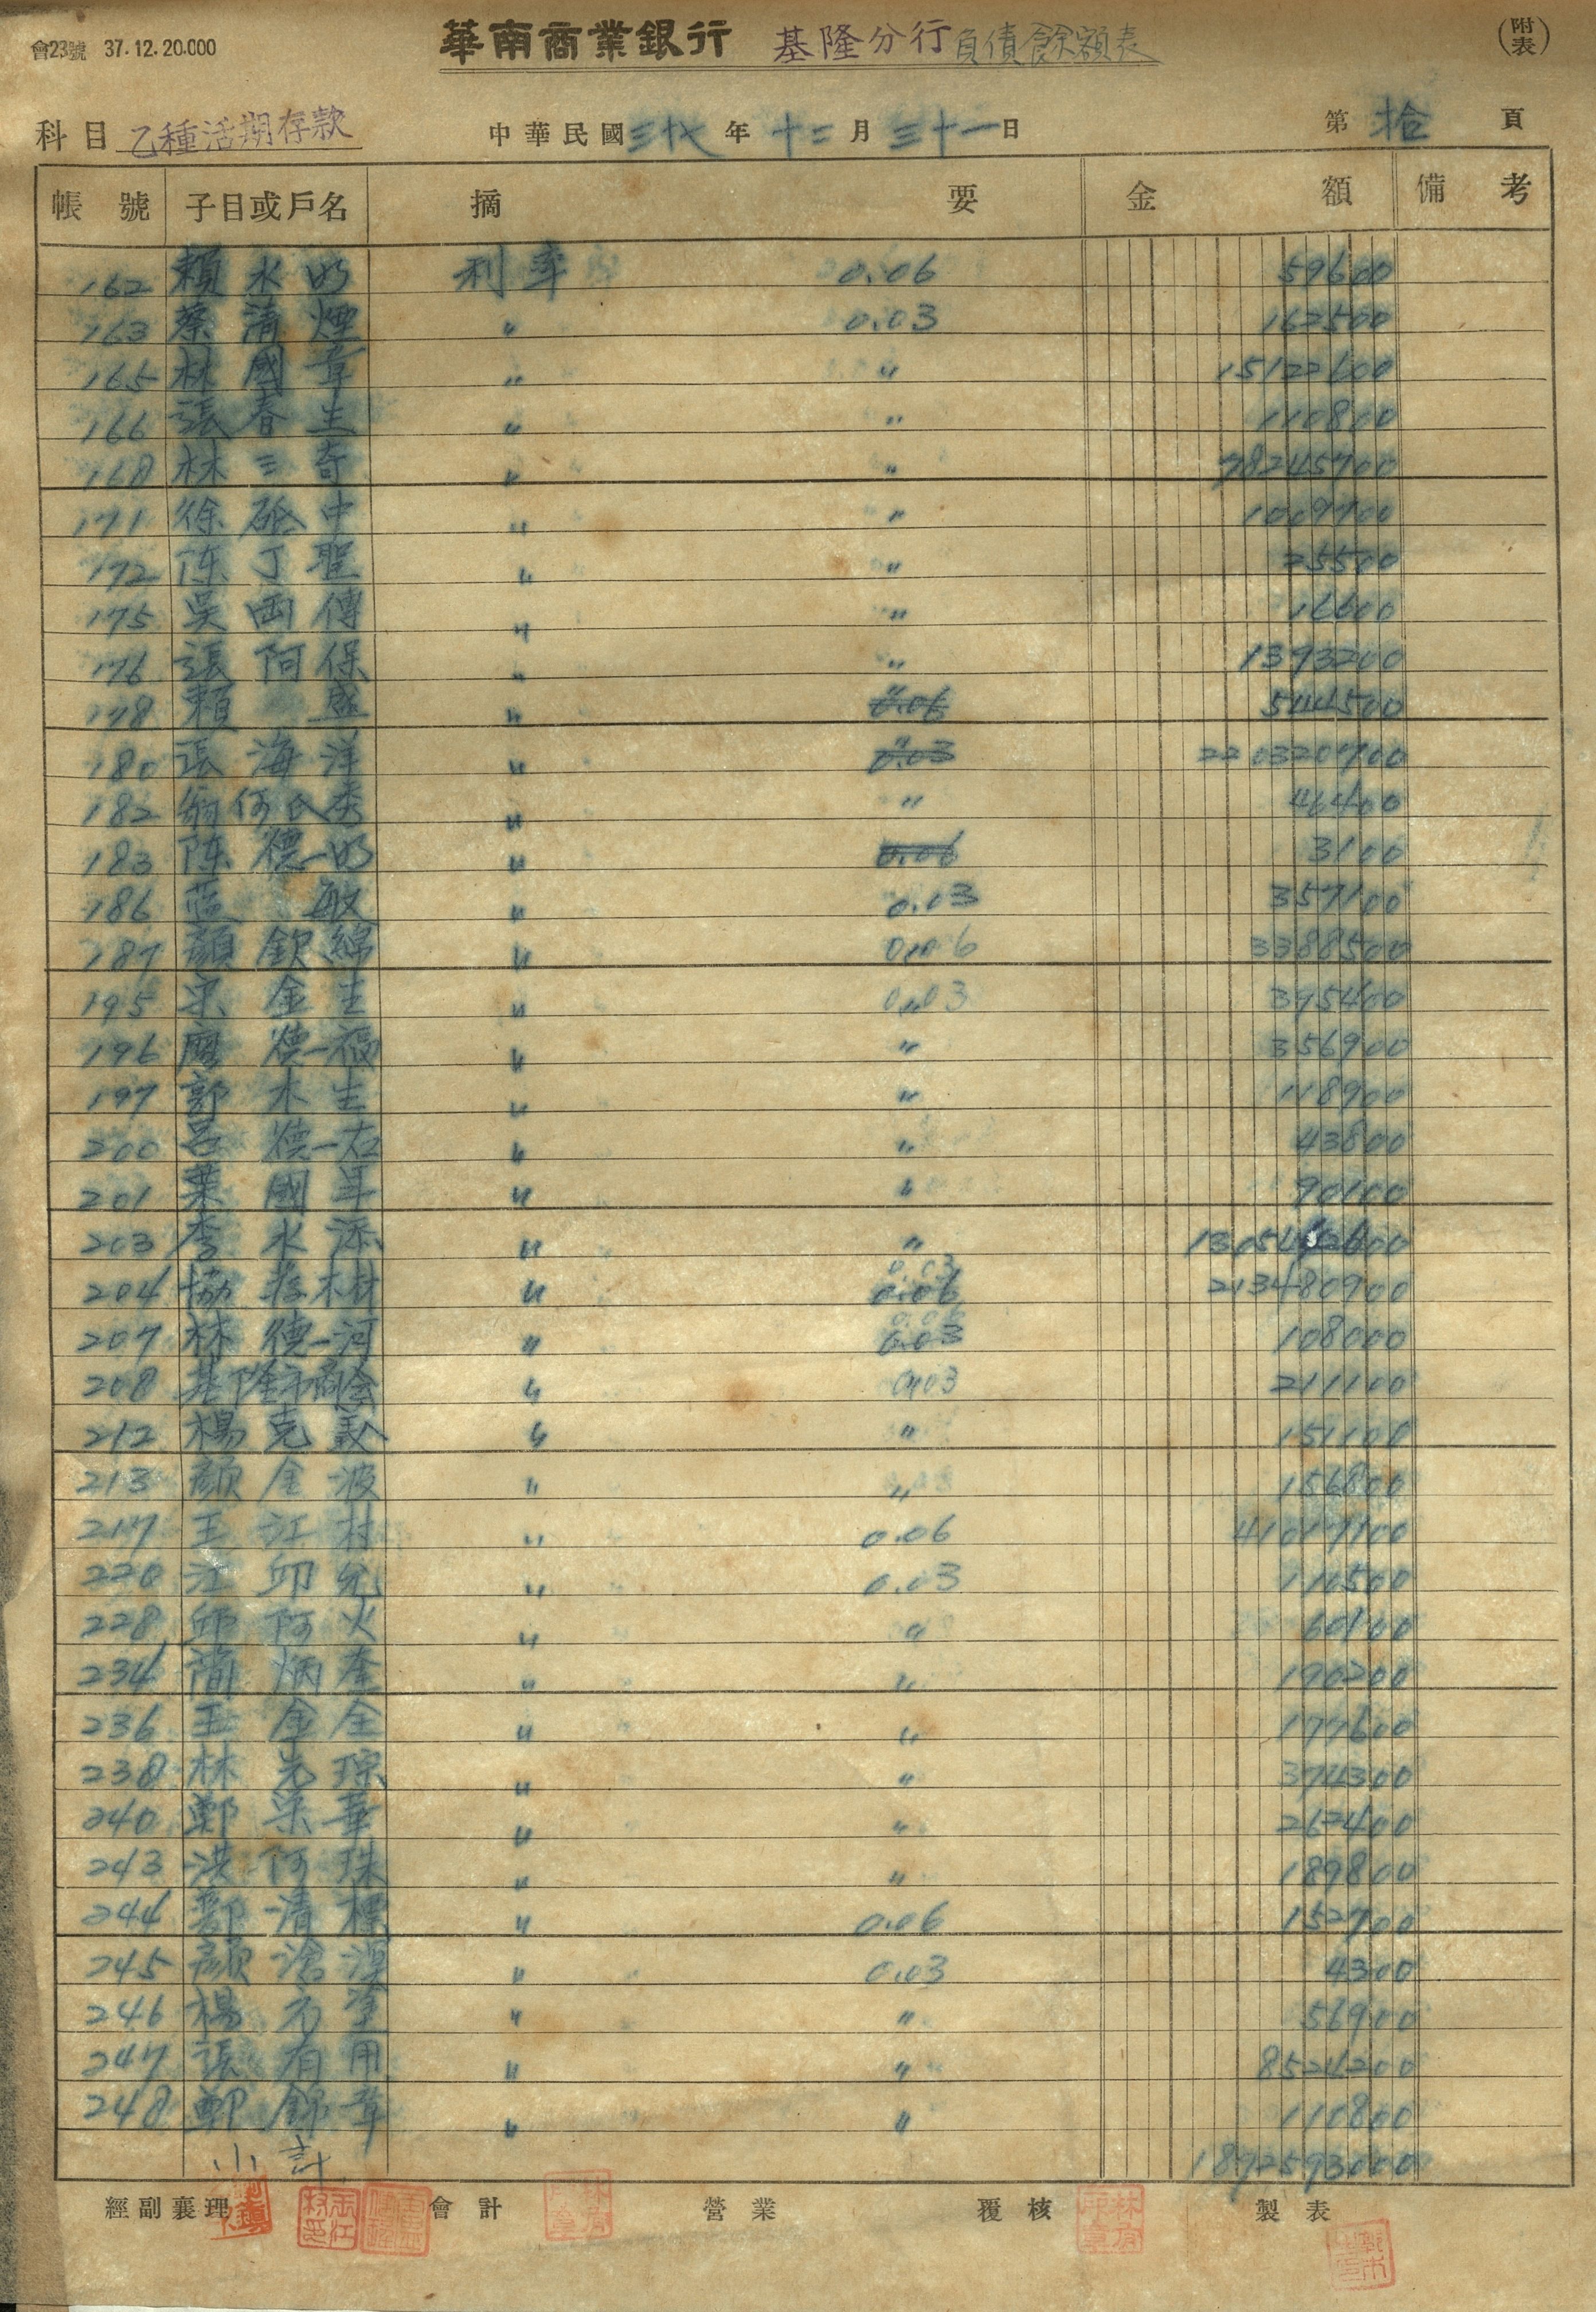 會23號 37.12.20.000
華南商業銀行 基隆分行 負債餘額表 (附表)
科目 乙種活期存款 中華民國 三十七 年 十二 月 三十一 日 第 拾 頁
帳號 子目或戶名 摘要 金額 備考
162 賴水明 利率 0.06 59600
163 蔡清煙 〃 0.03 162500
165 林國章 〃 〃 15122600
166 張春生 〃 〃 110800
168 林三奇 〃 〃 78245700
171 徐 中 〃 〃 1009700
172 陈丁聖 〃 〃 25500
175 吳西傳 〃 〃 16600
176 張阿保 〃 〃 1393200
178 賴盛 〃 〃 544500
180 張海洋 〃 〃 220320700
182 翁何氏秀 〃 〃 46400
183 陈德明 〃 0.06 3100
186 蓝敏 〃 0.03 357100
187 顏欽綿 〃 0.06 3388500
195 宋金生 〃 0.03 395400
196 廖德福 〃 〃 356900
197 郭木生 〃 〃 118900
200 呂德右 〃 〃 43800
201 葉國年 〃 〃 90100
203 李水添 〃 〃
204 協 木材 〃 0.03 213480900
207 林德河 〃 108000
208 基隆市商会 〃 0.03 211100
212 楊克 〃 〃 151100
213 顏金波 〃 〃 156800
217 王江村 〃 0.06 41017100
220 江卯 〃 0.03 110500
228 邱阿火 〃 〃 60100
234 簡炳奎 〃 〃 190200
236 王金全 〃 〃 177600
238 林光琮 〃 〃 374300
240 鄭 華 〃 〃 262400
243 洪阿珠 〃 〃 189800
244 鄭清標 〃 0.06 152700
245 顏滄溟 〃 0.03 4300
246 楊 塗 〃 〃 56900
247 張有用 〃 〃 8524200
248 鄭錦章 〃 〃 110800
小計 1892593000
經副襄理 會計 營業 覆核 製表